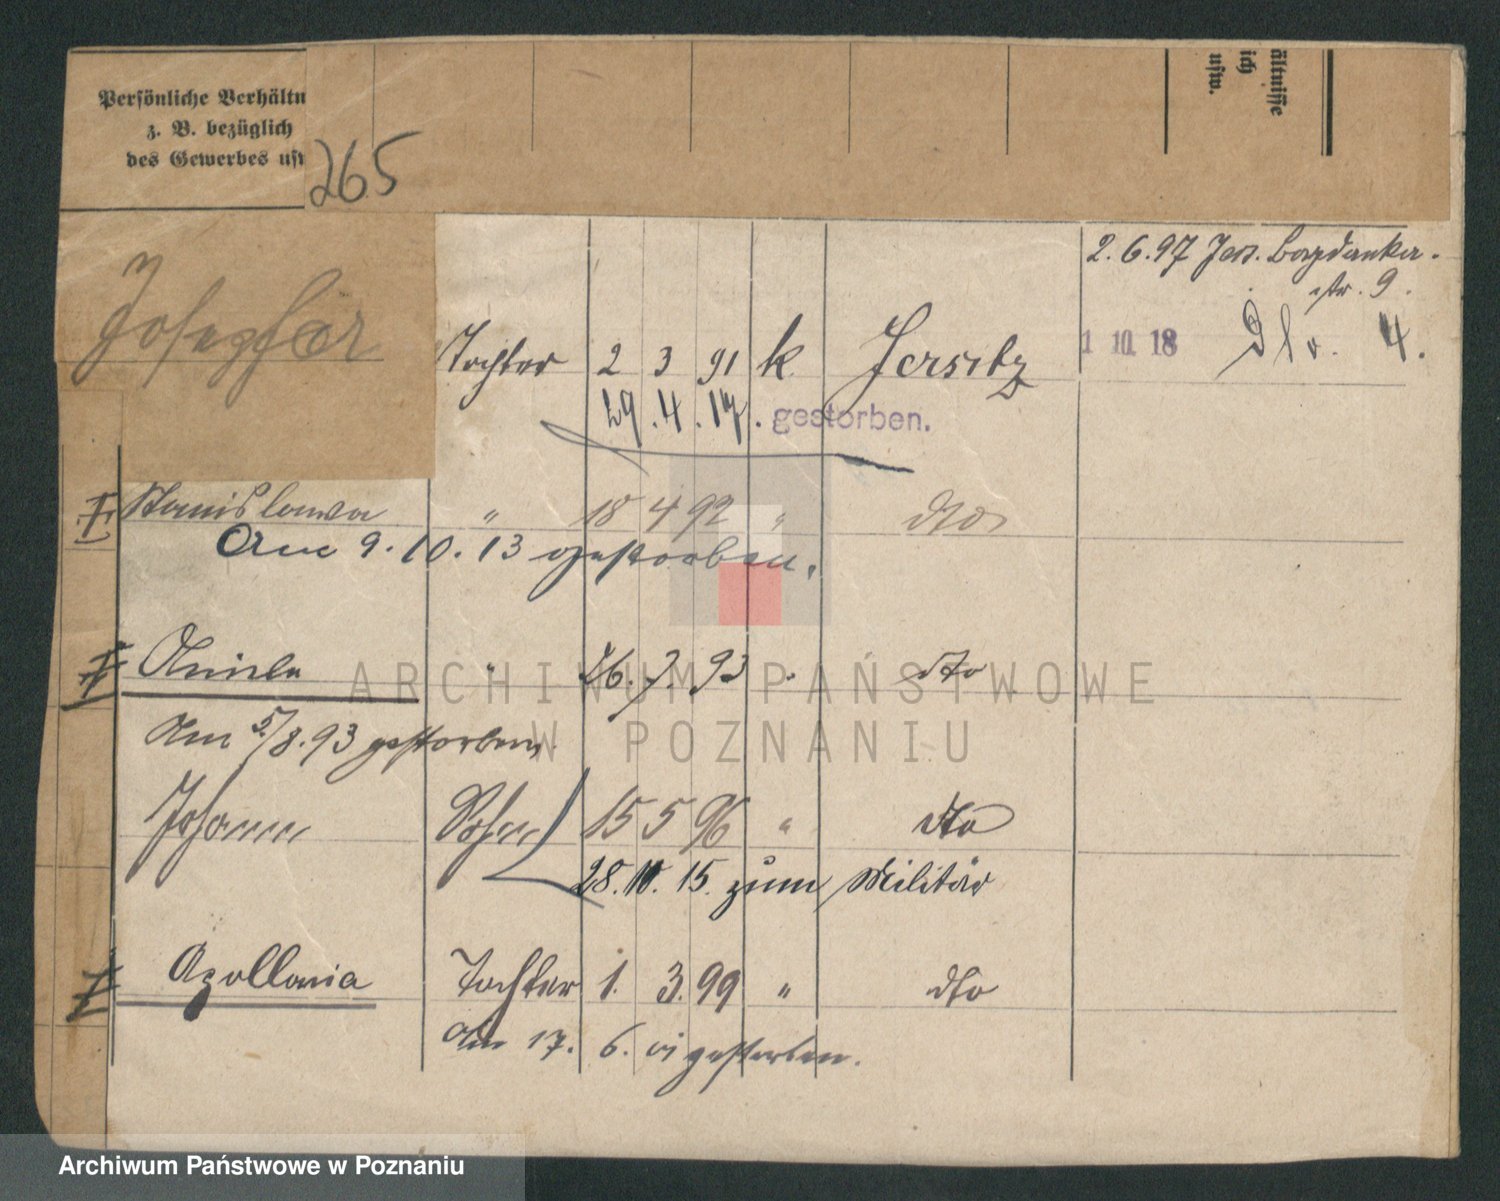 Persönliche Verhältn
z. B. bezüglich
des Gewerbes usw
265
ältnisse
ich
usw.
2. 6. 97 Jers. Bogdanker-
str. 9.
Tochter 2 3 91 k Jersitz
1 10 18 4.
29. 4. 17. gestorben.
I Stanislawa " 18 4 92 " dto
Am 9. 10. 13 gestorben.
" 26. 7. 93 " dto
Am 5/8. 93 gestorben
Johann Sohn 15 5 96 " dto
28. 10. 15. zum Militär
Apollonia Tochter 1. 3. 99 " dto
Am 17. 6. 01 gestorben.
ARCHIWUM PAŃSTWOWE
W POZNANIU
Archiwum Państwowe w Poznaniu